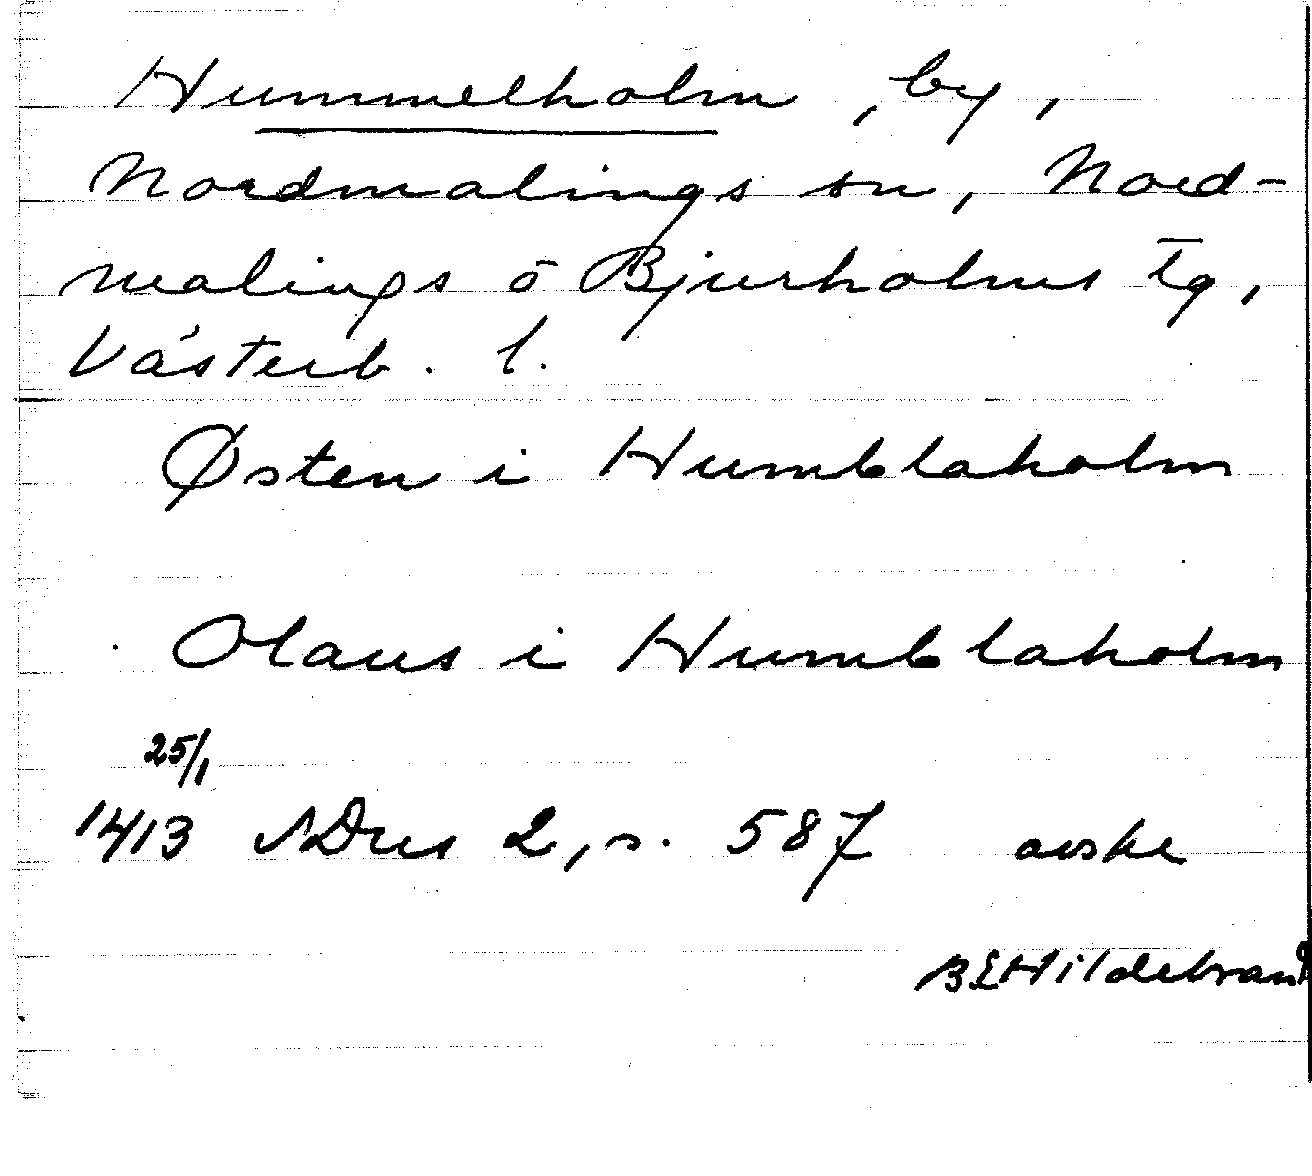 Hummelholm, by,
Nordmalings sn, Nord-
malings o Bjurholms tg,
Västerb. l.
Østen i Humblaholm
Olaus i Humblaholm
25/1
1413 SDns 2, s. 587 avskr
BEHildebrand